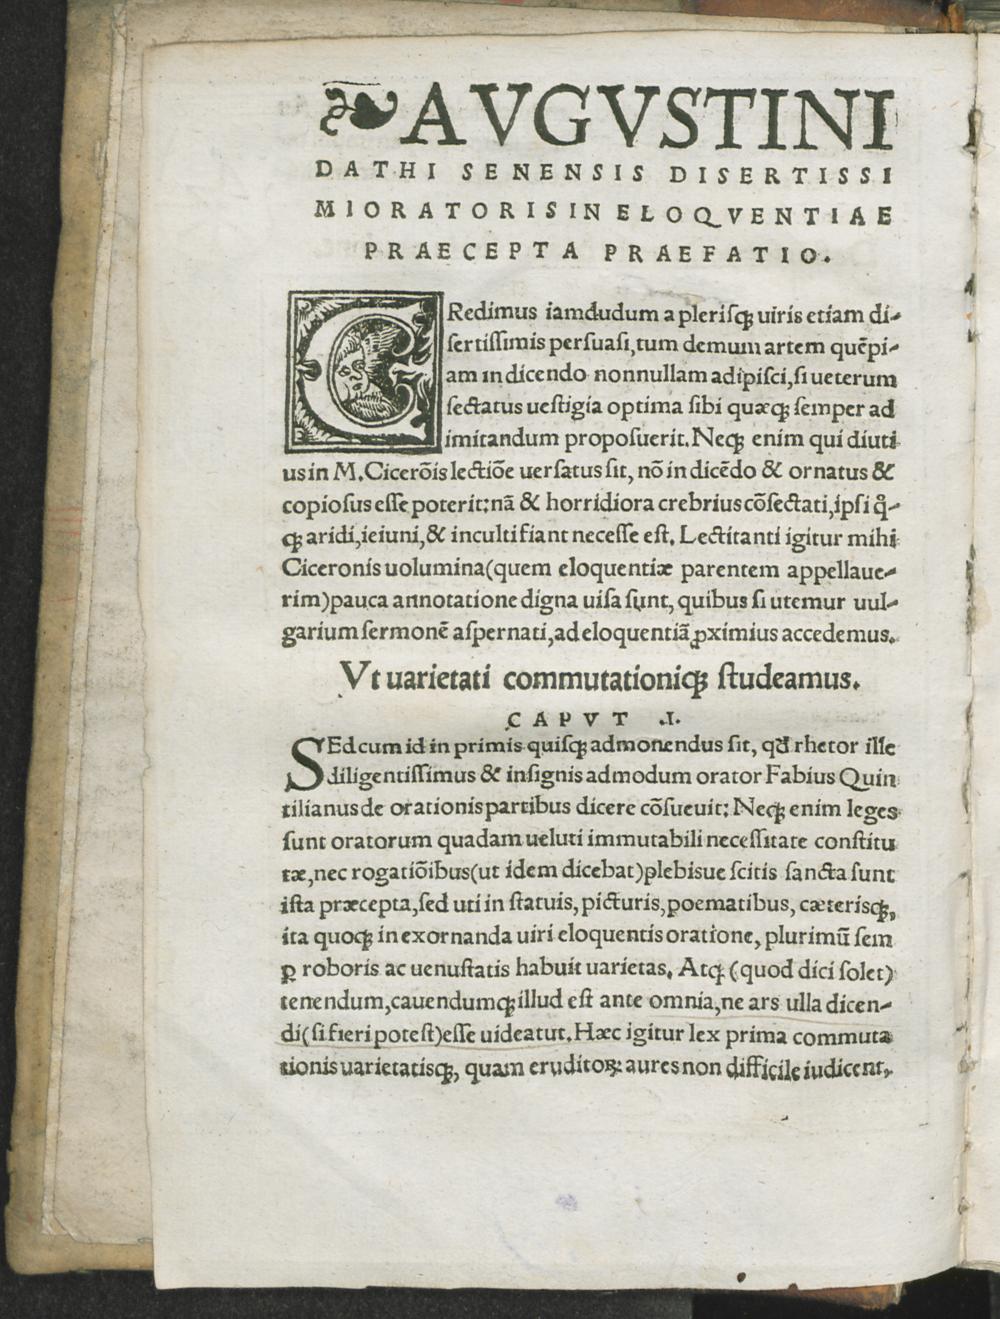 AVGVSTINI
DATHI SENENSIS DISERTISSI
MIORATORISIN ELOQVENTIAE
PRAECEPTA PRAEFATIO.
CRedimus iamdudum a plerisqꝫ uiris etiam di-
sertissimis persuasi,tum demum artem quẽpi-
am in dicendo nonnullam adipisci,si ueterum
sectatus uestigia optima sibi quæqꝫ semper ad
imitandum proposuerit. Neqꝫ enim qui diuti
us in M.Cicerõis lectiõe uersatus sit, nõ in dicẽdo & ornatus &
copiosus esse poterit:nã & horridiora crebrius cõsectati,ipsi q̊-
qꝫ aridi,ieiuni,& inculti fiant necesse est. Lectitanti igitur mihi
Ciceronis uolumina(quem eloquentiæ parentem appellaue-
rim)pauca annotatione digna uisa sunt, quibus si utemur uul-
garium sermonẽ aspernati,ad eloquentiã ꝓximius accedemus.
Vt uarietati commutationiqꝫ studeamus.
CAPVT .I.
SEd cum id in primis quisqꝫ admonendus sit, qđ rhetor ille
diligentissimus & insignis admodum orator Fabius Quin
tilianus de orationis partibus dicere cõsueuit: Neqꝫ enim leges
sunt oratorum quadam ueluti immutabili necessitate constitu
tæ,nec rogatiõibus(ut idem dicebat)plebisue scitis sancta sunt
ista præcepta,sed uti in statuis, picturis,poematibus, cæterisqꝫ,
ita quoqꝫ in exornanda uiri eloquentis oratione, plurimũ sem
ꝑ roboris ac uenustatis habuit uarietas. Atqꝫ (quod dici solet)
tenendum,cauendumqꝫ illud est ante omnia,ne ars ulla dicen-
di(si fieri potest)esse uideatut. Hæc igitur lex prima commuta
tionis uarietatisqꝫ, quam eruditoꝝ aures non difficile iudicent,